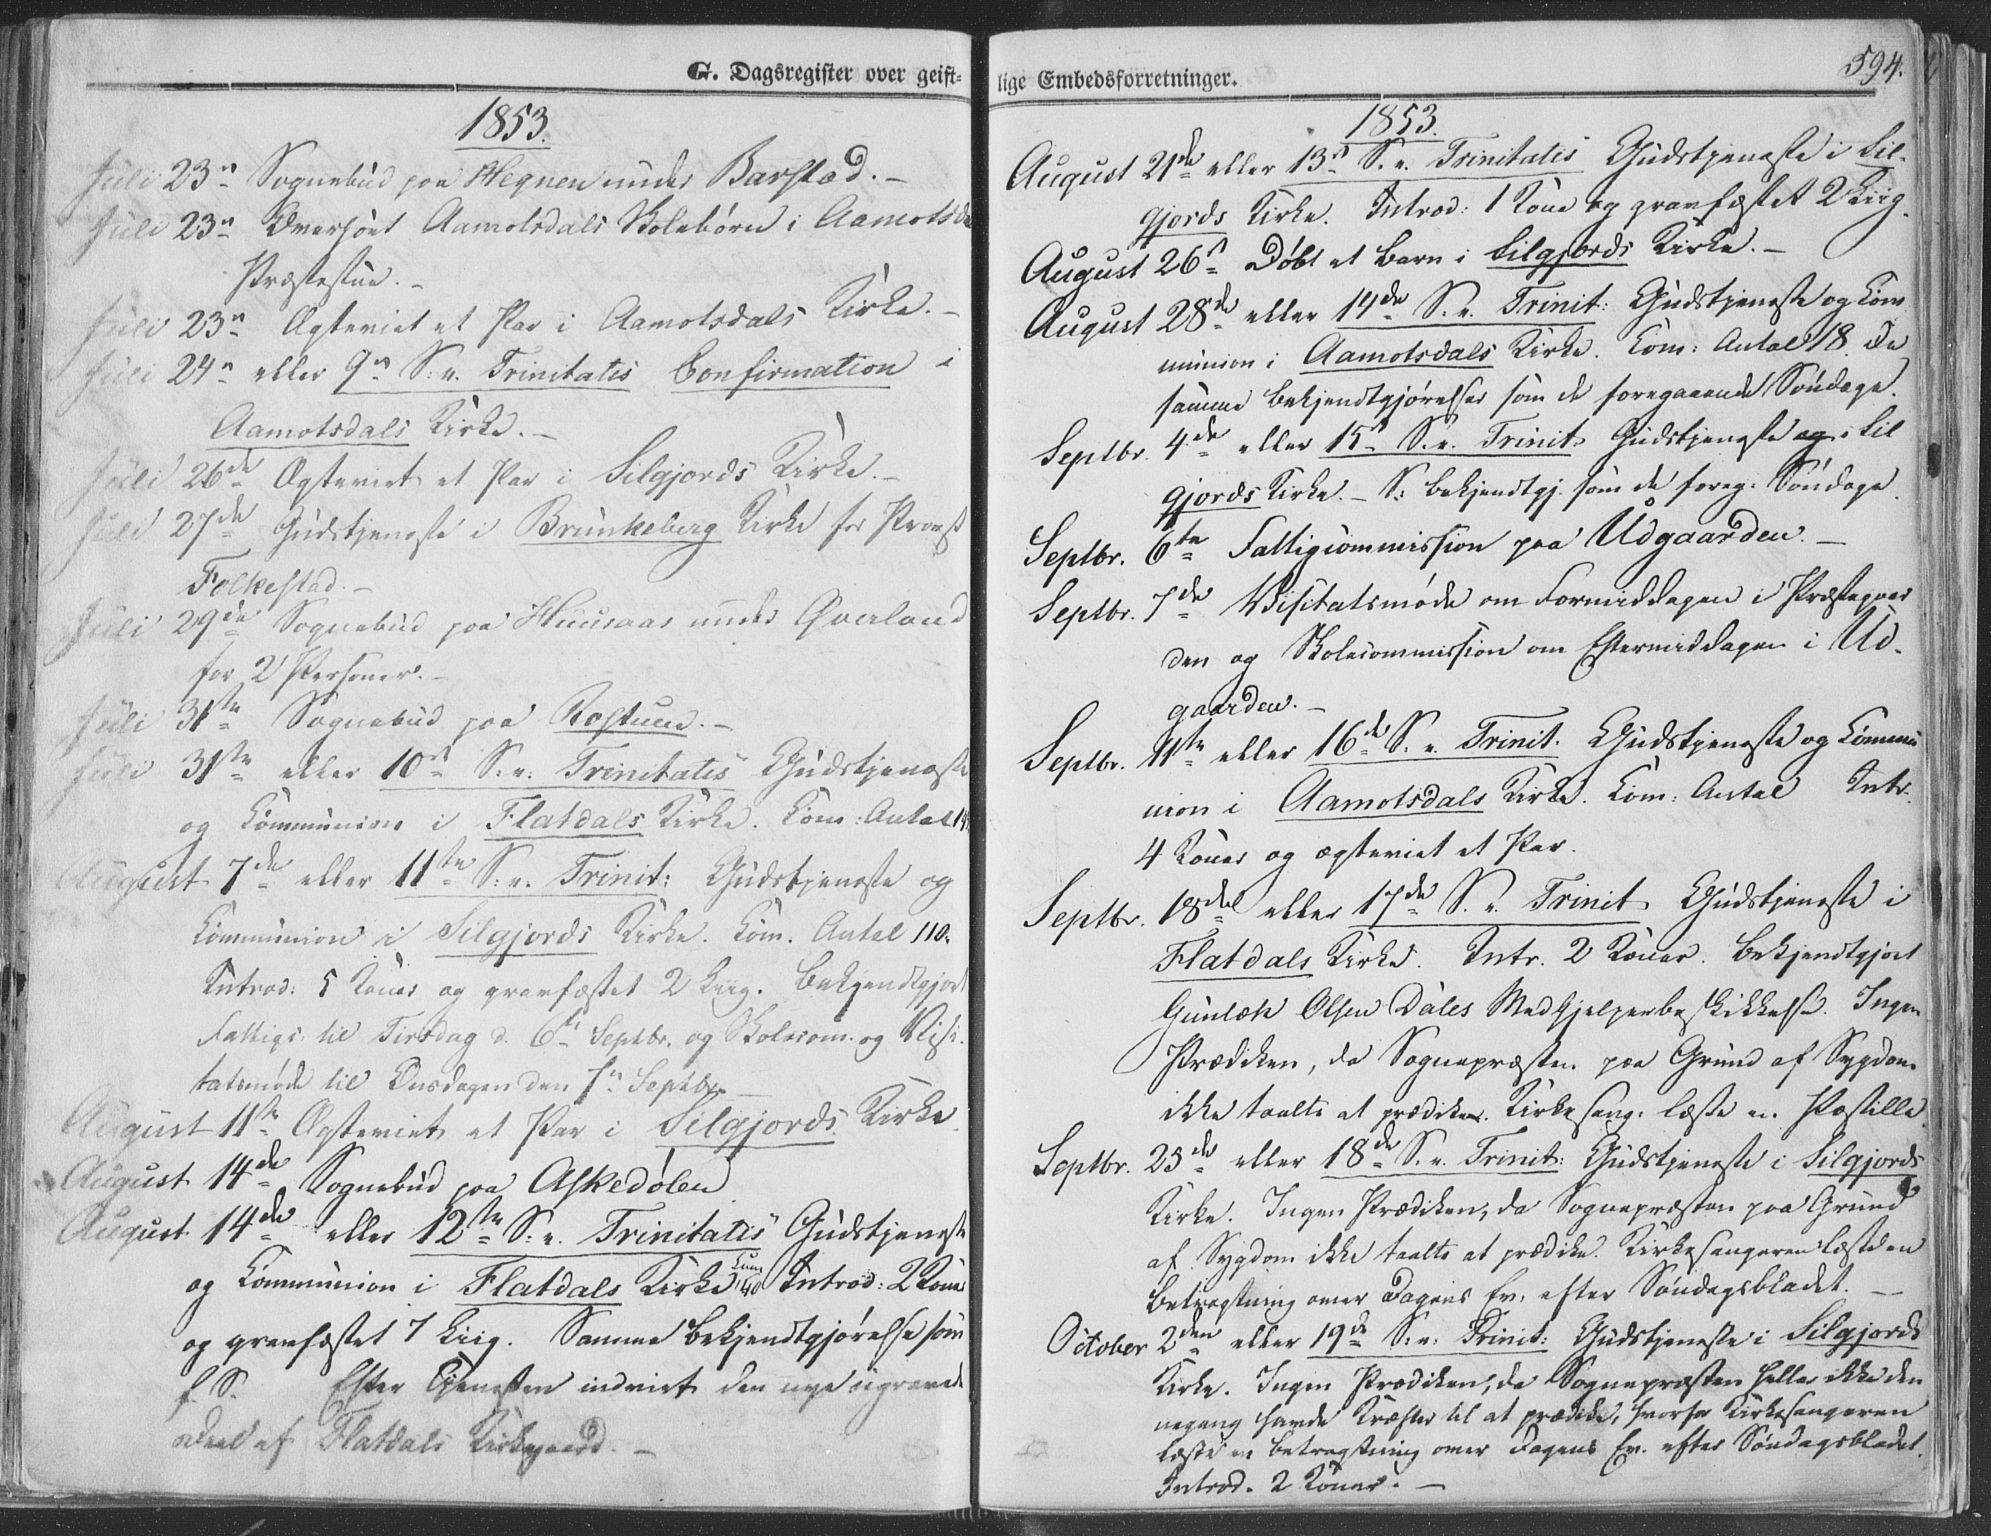 G. Dagsregister over geist-
1853.
Juli 23n Sognebud paa Hegnen under Barstad. –
Juli 23n Overhört Aamotsdals Skolebørn i Aamotsda
Præstestue. –
Juli 23n Ægteviet et Par i Aamotsdals Kirke. –
Juli 24n eller 9n S. e. Trinitatis Confirmation i
Aamotsdals Kirke. –
Juli 26de Ægteviet et Par i Silgjords Kirke. –
Juli 27de Gudstjeneste i Brunkeberg Kirke for Provst
Folkestad. –
Juli 29de Sognebud paa Huusaas under Øverland
for 2 Personer. –
Juli 31te Sognebud paa Rostuen. –
Juli 31te eller 10n S. e. Trinitatis Gudstjeneste
og Communion i Flatdals Kirke. Com: Antal
August 7de eller 11te S. e. Trinit: Gudstjeneste og
Communion i Silgjords Kirke. Com. Antal 110.
Introd: 5 Koner og gravfæstet 2 Liig. Bekjendtgjort
Fattigc. til Tirsdag d. 6te Septbr. og Skolecom. og Visi-
tatsmøde til Onsdagen den 7n Septbr. –
August 11te Ægteviet et Par i Silgjords Kirke.
August 14de Sognebud paa Askedølen
August 14de eller 12te S. e. Trinitatis Gudstjeneste
og Communion i Flatdals Kirke Com 140 Introd: 2 Koner
og gravfæstet 7 Liig. Samme Bekjendtgjørelse som
f. S. Efter Tjenesten indviet den nye
Deel af Flatdals Kirkegaard. –
lige Embedsforretninger.
594.
1853.
August 21de eller 13n S. e. Trinitatis Gudstjeneste i Sil-
gjords Kirke. Introd: 1 Kone og gravfæstet 2 Liig.
August 26n Døbt et Barn i Silgjords Kirke. –
August 28de eller 14de S. e. Trinit: Gudstjeneste og Com
munion i Aamotsdals Kirke. Com: Antal 18. De
samme Bekjendtgjørelser som de foregaaende Søndage.
Septbr. 4de eller 15n S. e. Trinit. Gudstjeneste og i Sil
gjords Kirke. – S: Bekjendtgj. som de foreg. Søndage.
Septbr. 6te Fattigcommission paa Udgaarden. –
Septbr. 7de Visitatsmøde om Formiddagen i Præstegaar
den og Skolecommission om Eftermiddagen i Ud-
gaarden. –
Septbr. 11te eller 16de S. e. Trinit. Gudstjeneste og Commu
nion i Aamotsdals Kirke. Com: Antal Intr.
4 Koner og ægteviet et Par.
Septbr. 18de eller 17de S. e. Trinit Gudstjeneste i
Flatdals Kirke. Intr. 2 Koner. Bekjendtgjort
Gunleik Olsen Dales Medhjelperbeskikkelse. Ingen
Prædiken, da Sognepræsten paa Grund af Sygdom
ikke taalte at prædike. Kirkesang. læste en Postille.
Septbr. 25de eller 18de S. e. Trinit: Gudstjeneste i Silgjords
Kirke. Ingen Prædiken, da Sognepræsten paa Grund
af Sygdom ikke taalte at prædike. Kirkesangeren læste en
Betragtning over Dagens Ev. efter Søndagsbladet. –
October 2den eller 19de S. e. Trinit: Gudstjeneste i Silgjords
Kirke. Ingen Prædiken, da Sognepræsten heller ikke den
negang havde Kræfter til at prædike, hvorfor Kirkesangeren
læste en Betragtning over Dagens Ev. efter Søndagsbladet.
Introd. 2 Koner. –